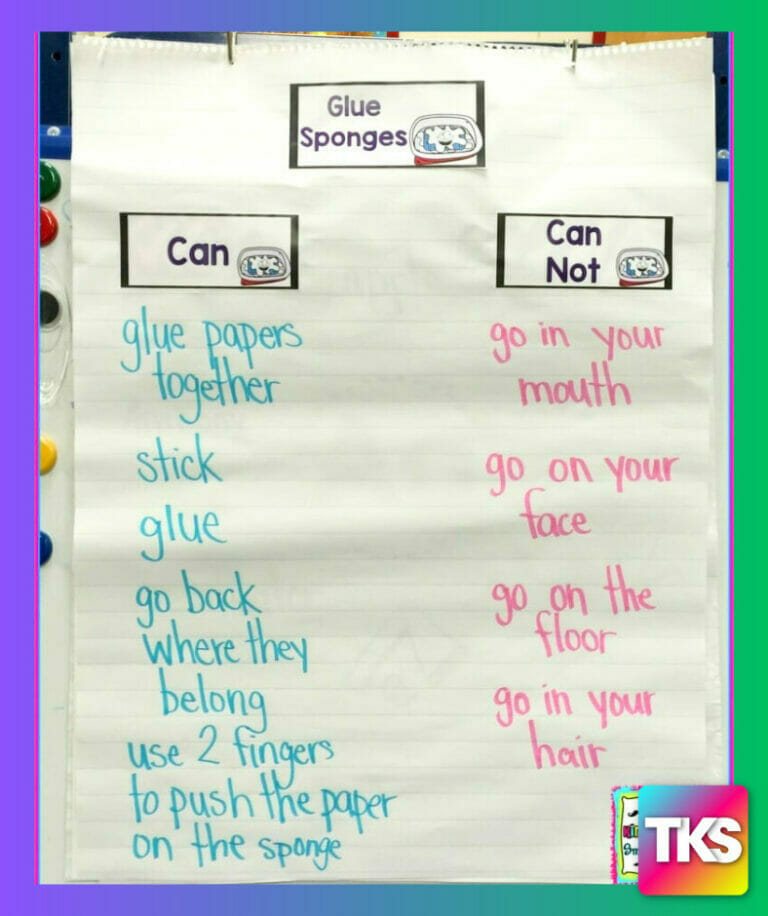 Glue
Sponges
Can
Can
Not
glue papers
together
stick
glue
go back
where they
belong
use 2 fingers
to push the paper
on the sponge
go in your
mouth
go on your
face
go on the
floor
go in your
hair
TKS